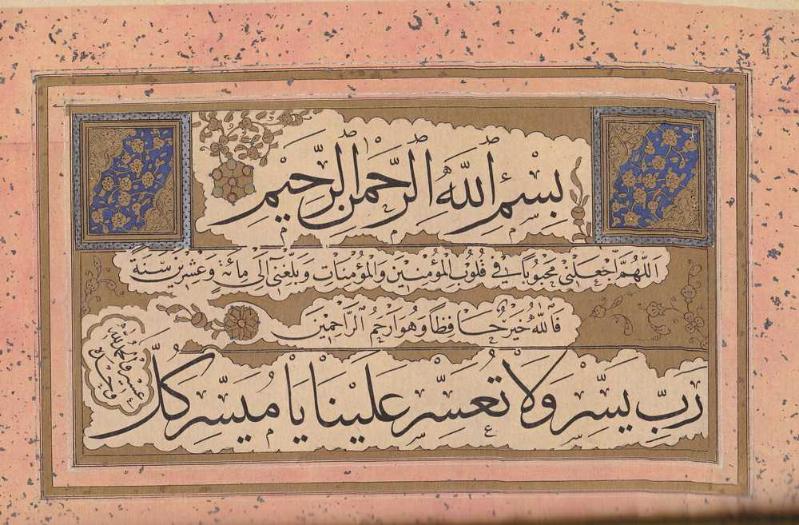 بسم الله الرحمن الرحيم
اللهم اجعلني محبوبا في قلوب المؤمنين والمؤمنات وبلغني الى مائة وعشرين سنة
فالله خير حافظا وهو ارحم الراحمين
رب يسر ولا تعسر علينا يا ميسر كل
عسير والحمد لله
وحده